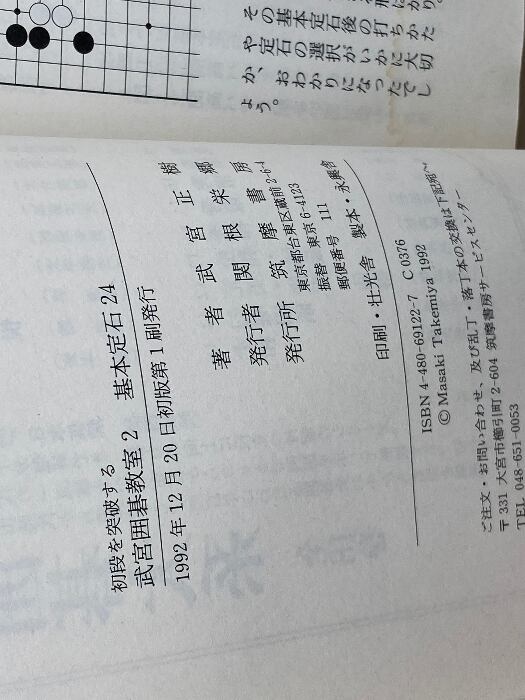 形
がり。
その基本定石後の打ちかた
や定石の選択がいかに大切
か、おわかりになったでし
ょう。
初段を突破する
武宮囲碁教室2 基本定石24
1992年12月20日初版第1刷発行
著者 武宮正樹
発行者 関根栄郷
発行所 筑摩書房
東京都台東区蔵前2-6-4
振替 東京6-4123
郵便番号 111
印刷・壮光舎 製本・永興舎
ISBN 4-480-69122-7 C0376
© Masaki Takemiya 1992
ご注文・お問い合わせ、及び乱丁・落丁本の交換は下記宛へ
〒331 大宮市櫛引町2-604 筑摩書房サービスセンター
TEL 048-651-0053